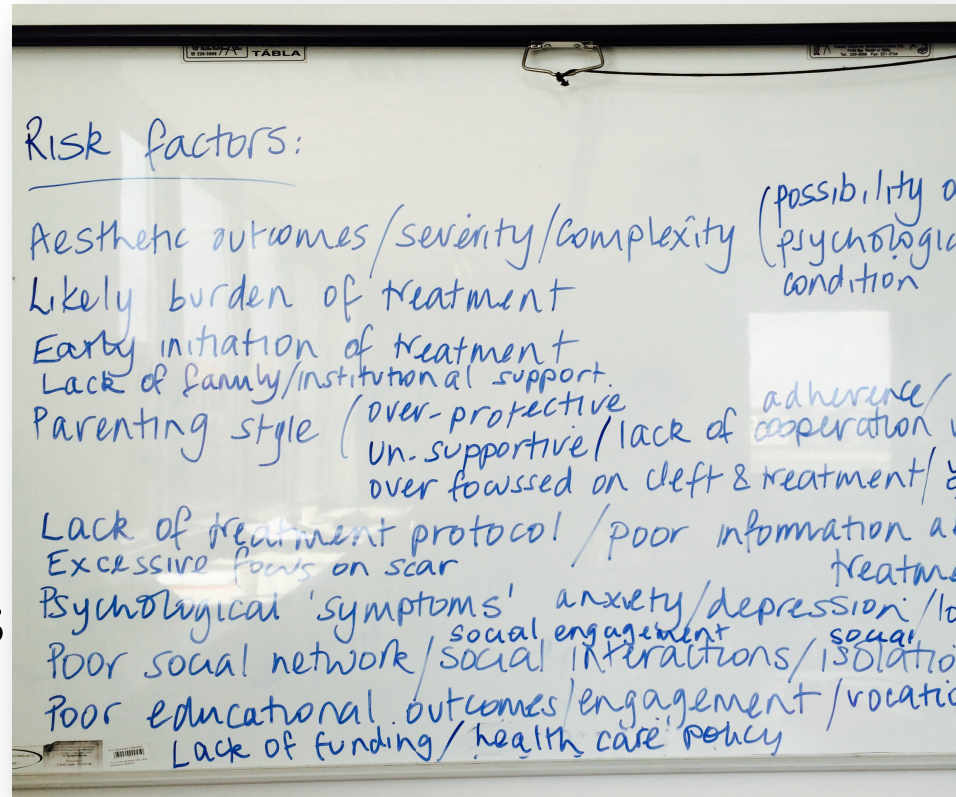 TÁBLA
Risk factors:
Aesthetic outcomes/severity/complexity (possibility
psychologic
condition
Likely burden of treatment
Early initiation of treatment
Lack of family/institutional support.
Parenting style (over-protective
un-supportive/lack of cooperation
adherence/
over focussed on cleft & treatment/
Lack of treatment protocol/poor information a
treatme
Excessive focus on scar
Psychological 'symptoms' anxiety/depression/lo
Poor social network/social interactions/isolatio
social engagement social
Poor educational outcomes/engagement/vocatio
Lack of funding/health care policy